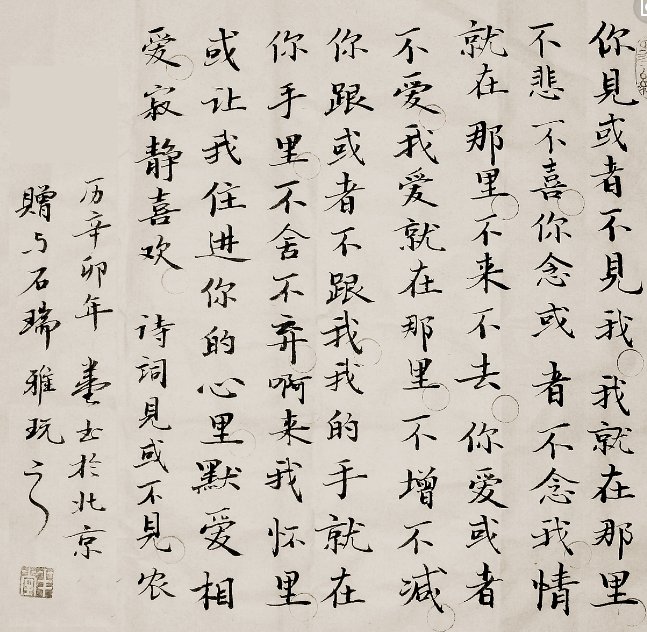 你見或者不見我我就在那里
不悲不喜你念或者不念我情
就在那里不来不去你爱或者
不爱我爱就在那里不增不減
你跟或者不跟我我的手就在
你手里不舍不弃啊来我怀里
或让我住进你的心里默爱相
爱寂静喜欢 诗詞見或不見农
历辛卯年 书於北京
贈与石瑞雅玩之